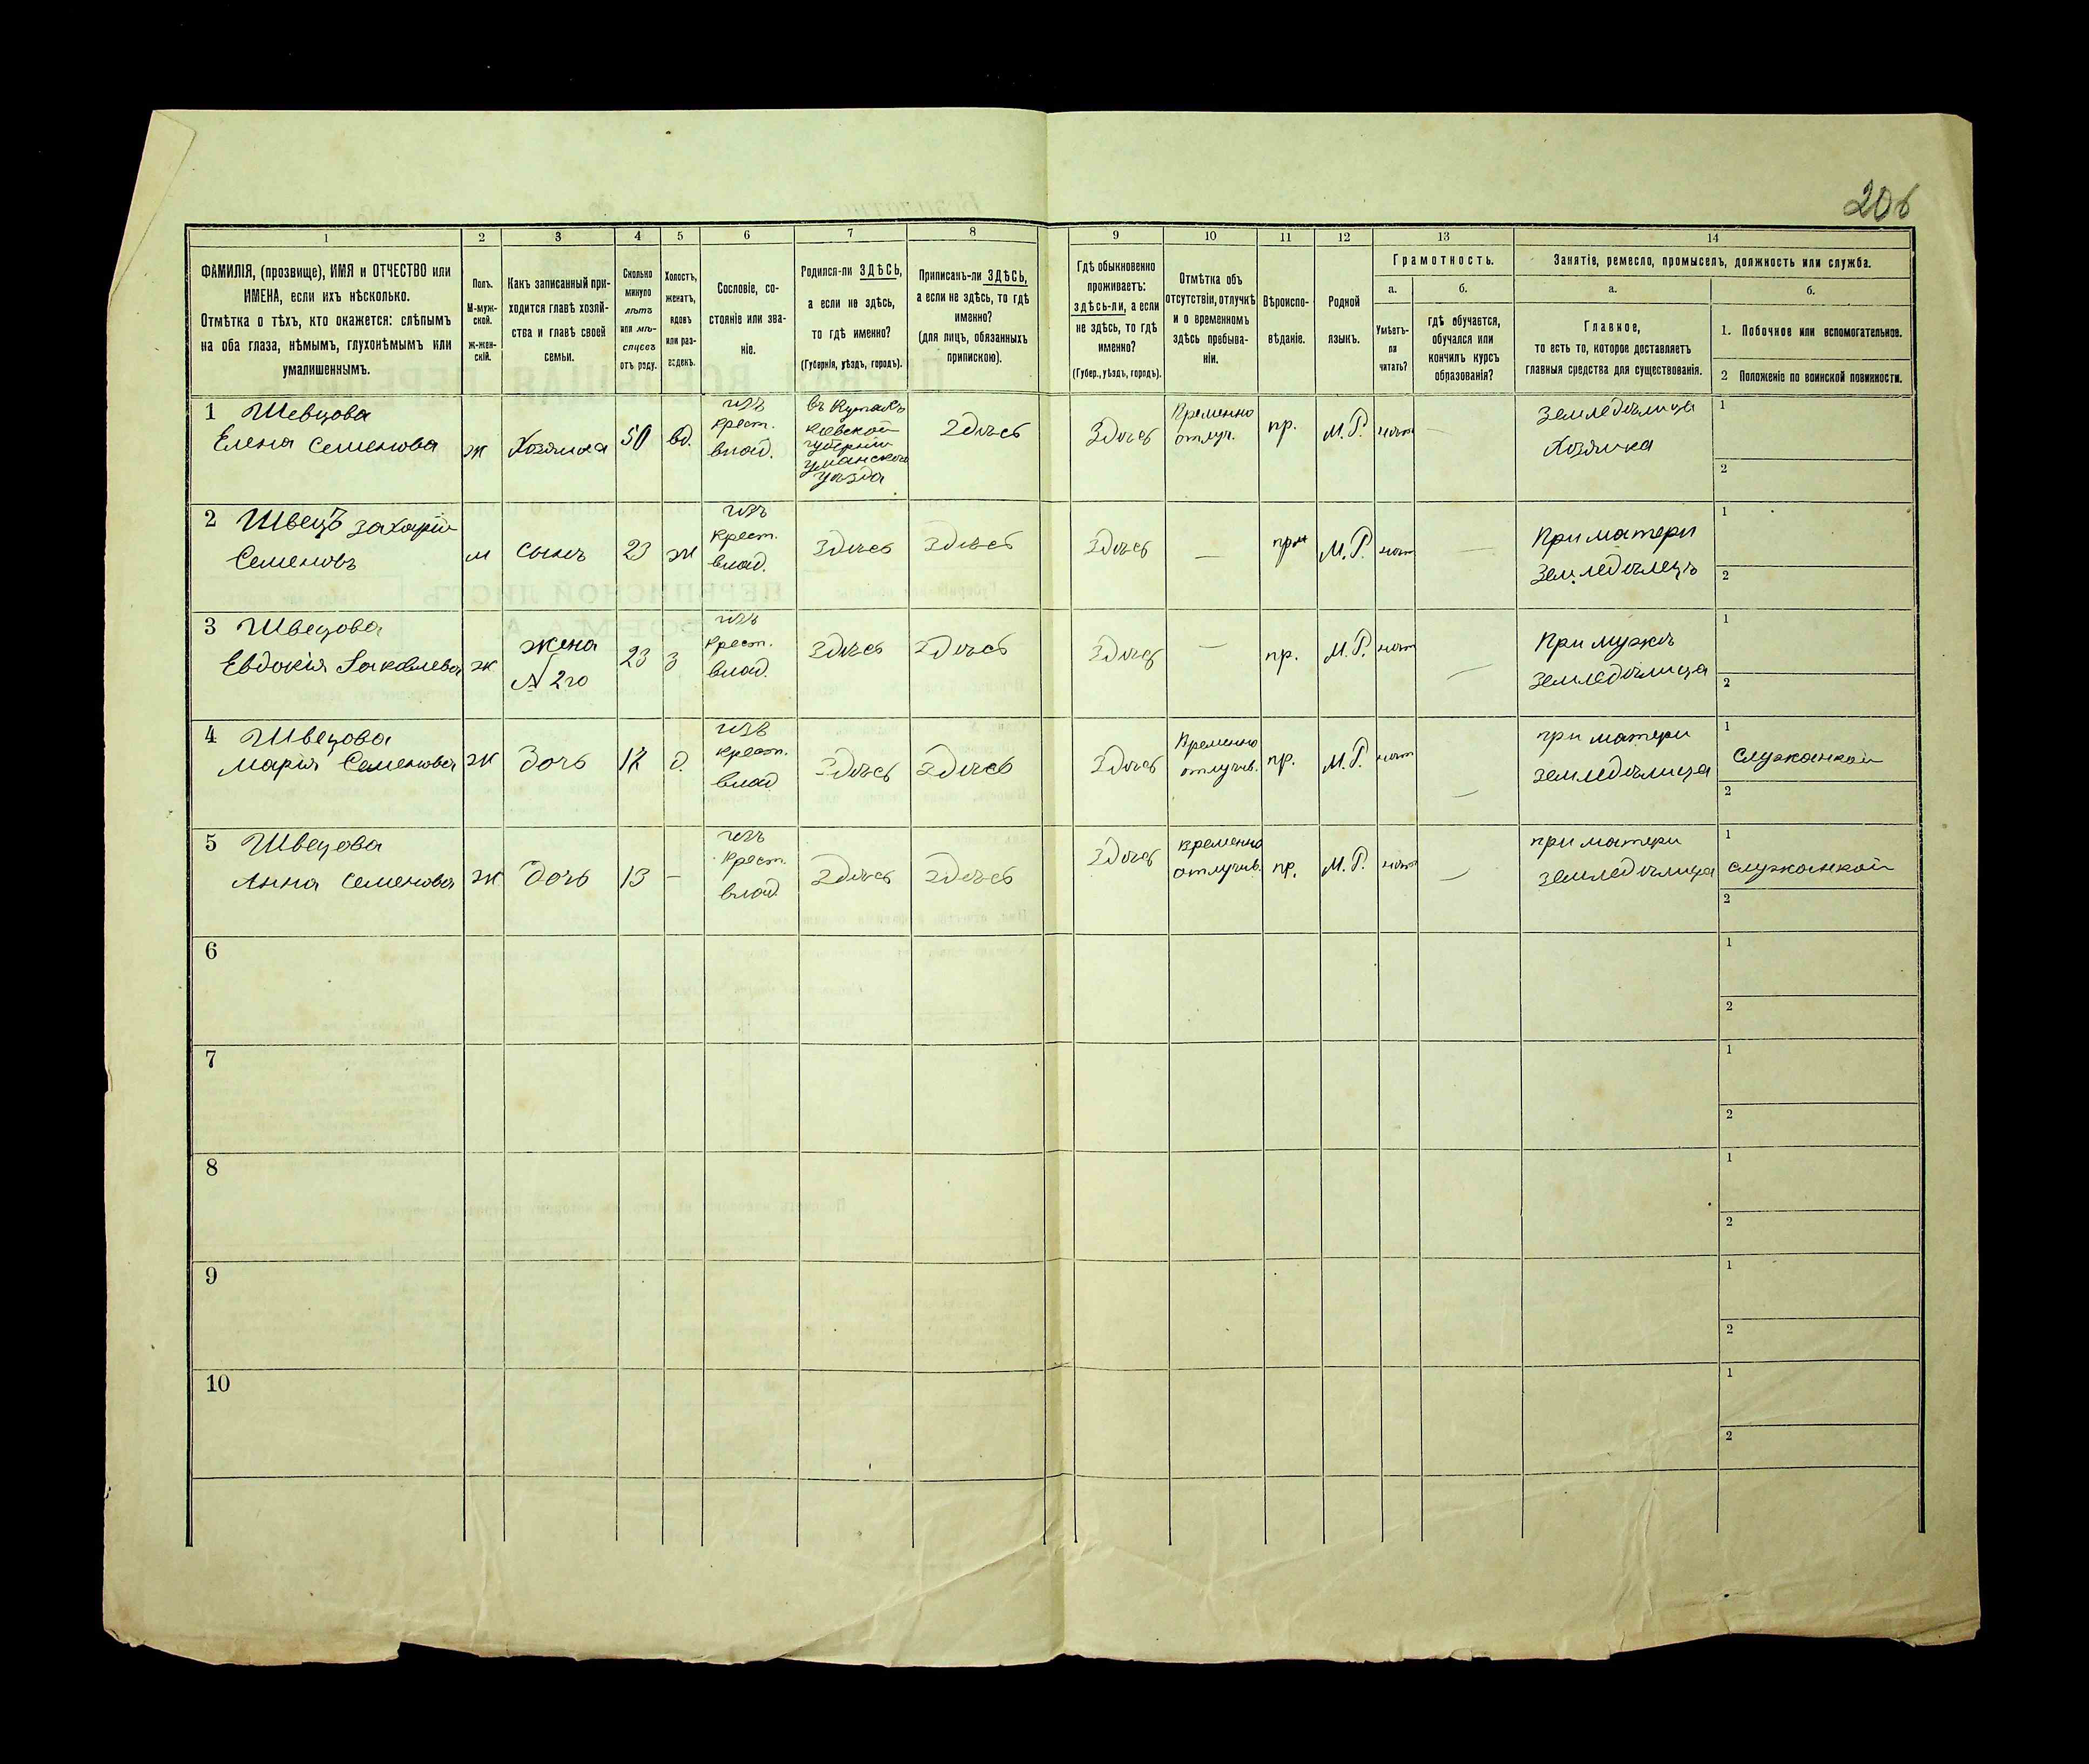 206
1 2 3 4 5 6 7 8 9 10 11 12 13 14
ФАМИЛІЯ, (прозвище), ИМЯ и ОТЧЕСТВО или
ИМЕНА, если ихъ нѣсколько.
Отмѣтка о тѣхъ, кто окажется: слѣпымъ
на оба глаза, нѣмымъ, глухонѣмымъ или
умалишеннымъ.
Полъ.
М-муж-
ской.
Ж-жен-
скій.
Какъ записанный при-
ходится главѣ хозяй-
ства и главѣ своей
семьи.
Сколько
минуло
лѣтъ
или мѣ-
сяцевъ
отъ роду.
Холостъ,
женатъ,
вдовъ
или раз-
веденъ.
Сословіе, со-
стояніе или зва-
ніе.
Родился-ли ЗДѢСЬ,
а если не здѣсь,
то гдѣ именно?
(Губернія, уѣздъ, городъ).
Приписанъ-ли ЗДѢСЬ,
а если не здѣсь, то гдѣ
именно?
(для лицъ, обязанныхъ
припискою).
Гдѣ обыкновенно
проживаетъ:
здѣсь-ли, а если
не здѣсь, то гдѣ
именно?
(Губер., уѣздъ, городъ).
Отмѣтка объ
отсутствіи, отлучкѣ
и о временномъ
здѣсь пребыва-
ніи.
Вѣроиспо-
вѣданіе.
Родной
языкъ.
Грамотность.
а.
Умѣетъ-
ли
читать?
б.
гдѣ обучается,
обучался или
кончилъ курсъ
образованія?
Занятіе, ремесло, промыселъ, должность или служба.
а.
Главное,
то есть то, которое доставляетъ
главныя средства для существованія.
б.
1. Побочное или вспомогательное.
2 Положеніе по воинской повинности.
1 Шевцова
Елена Семенова
ж
Хозяика
50
вд.
изъ
крест.
влад.
въ
Кіевской
губерніи
уманскаго
уѣзда
Здѣсь
Здѣсь
Временно
отлуч.
пр.
М.Р.
нѣт
—
Земледѣлица
Хозяика
1
2
2 Швецъ Захарій
Семеновъ
м
сынъ
23
ж
изъ
крест.
влад.
Здѣсь
Здѣсь
Здѣсь
—
М.Р.
нѣт
—
При матери
Земледѣлецъ
1
2
3 Швецова
Евдокія Яковлева
ж
жена
№ 2го
23
з
изъ
крест.
влад.
Здѣсь
Здѣсь
Здѣсь
—
пр.
М.Р.
нѣт
—
При мужѣ
Земледѣлица
1
2
4 Швецова
Марія Семенова
ж
дочь
д.
изъ
крест.
влад
Здѣсь
Здѣсь
Здѣсь
Временно
отлучив.
пр.
М.Р.
нѣт
—
при матери
земледѣлица
1
служанкой
2
5 Швецова
Анна Семенова
ж
дочь
13
—
изъ
крест.
влад.
Здѣсь
Здѣсь
Здѣсь
временно
отлучив.
пр.
М.Р.
нѣт
—
при матери
земледѣлица
1
служанкой
2
6
1
2
7
1
2
8
1
2
9
1
2
10
1
2